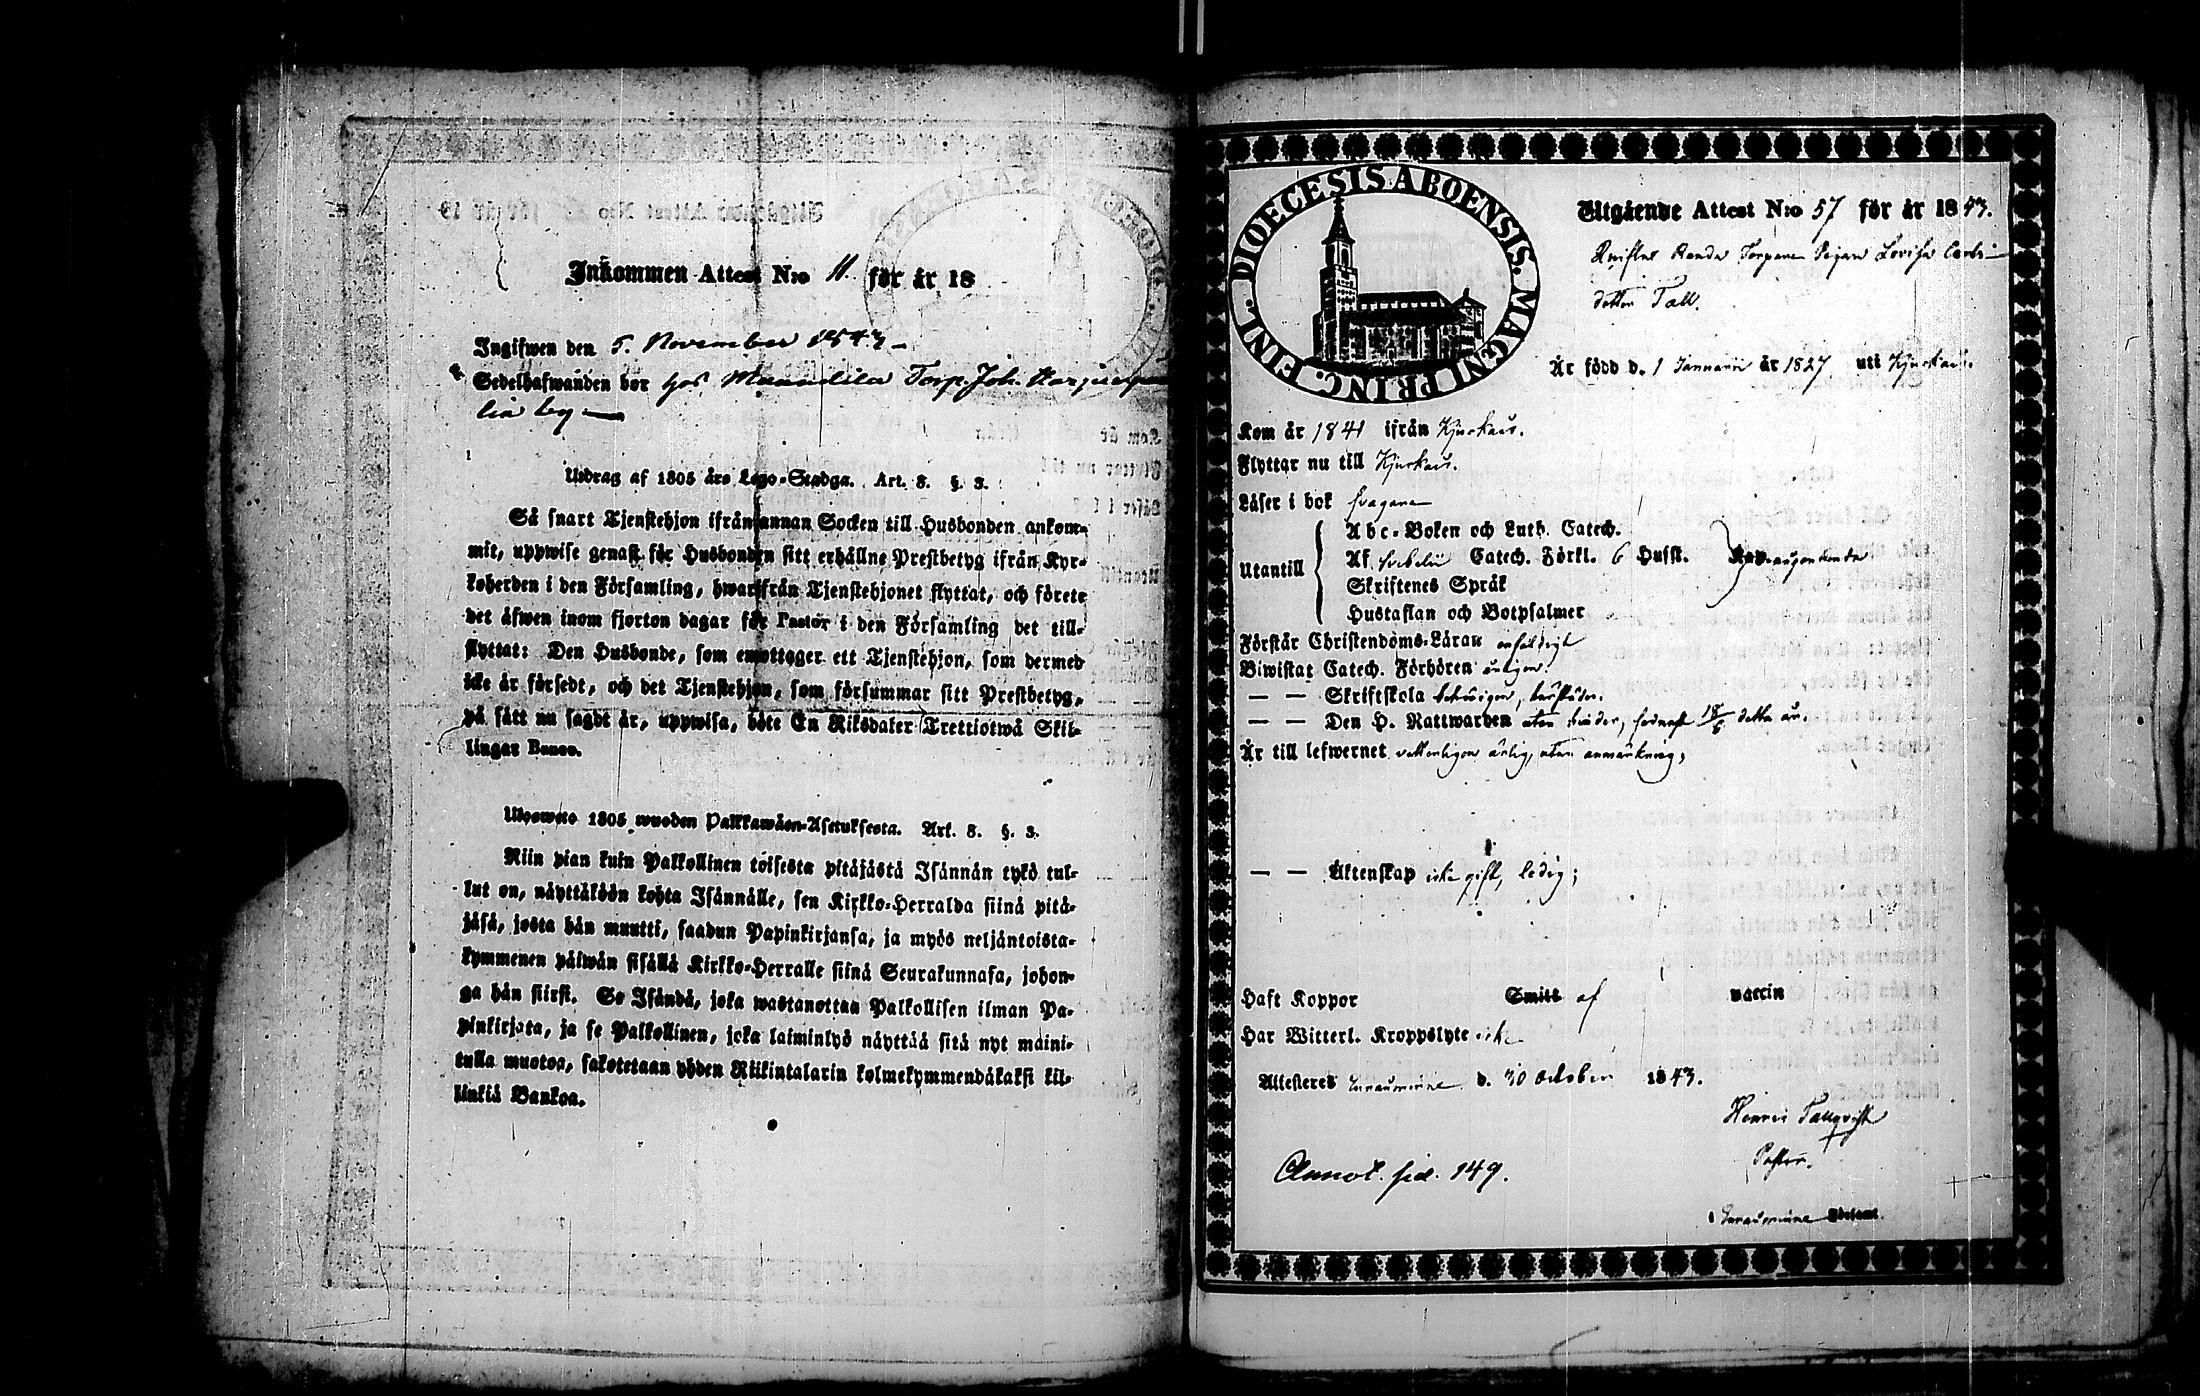 Inkommen Attest N:o 11. för år 18
Ingifwen den 5. November 1843 –
Sedelhafwanden bor hos Torp. Joh.
Utdrag af 1805 års Lego-Stadga. Art. 8. §. 3.
Så snart Tjenstehjon ifrån annan Socken till Husbonden ankom-
mit, uppwise genast för Husbonden sitt erhållne Prestbetyg ifrån Kyr-
koherden i den Församling, hwarifrån Tjenstehjonet flyttat, och förete
det äfwen inom fjorton dagar för Pastor i den Församling det till-
flyttat: Den Husbonde, som emottager ett Tjenstehjon, som dermed
icke är försedt, och det Tjenstehjon, som försummar sitt Prestbetyg,
på sätt nu sagdt är, uppwisa, böte En Riksdaler Trettiotwå Skil-
lingar Banco.
Ulosweto 1805 wuoden Palkkawäen-Asetuksesta. Art. 8. §. 3.
Niin pian kuin Palkollinen toisesta pitäjästä Isännän tykö tul-
lut on, näyttäköön kohta Isännälle, sen Kirkko-Herralda siinä pitä-
jäsä, josta hän muutti, saadun Papinkirjansa, ja myös neljäntoista-
kymmenen päiwän sisällä Kirkko-Herralle siinä Seurakunnasa, johon-
ga hän siirsi. Se Isändä, joka wastanottaa Palkollisen ilman Pa-
pinkirjata, ja se Palkollinen, joka laiminlyö näyttää sitä nyt maini-
tulla muotoa, sakotetaan yhden Riikintalarin kolmekymmendäkaksi kil-
linkiä Bankoa.
DIOECESIS ABOENSIS. MAGNI PRINC. FINL.
Utgående Attest N:o 57 för år 1843.
Torparen Pigan Lovisa Carls-
dotter Tall.
Är född d. 1 Januari år 1827 uti Kjurkais.
Kom år 1841 ifrån Kjurkais.
Flyttar nu till Kjurkais.
Läser i bok svagare
Abc-Boken och Luth. Catech.
Utantill Af Svebelii Catech. Förkl. 6 Hufst.
Skriftenes Språk
Hustaflan och Botpsalmer
Förstår Christendoms-Läran enfaldigt
Biwistat Catech. Förhören årligen
— — Skriftskola
— — Den H. Nattwarden utan hinder, sednast 18/6 detta år.
Är till lefwernet veterligen ärlig, utan anmärkning;
— — Äktenskap icke gift, ledig;
Haft Koppor Smitt af vaccin
Har Witterl. Kroppslyte icke
Attesteras d. 30 October 1843.
Henric Tallqvist
Pastor.
Annot. sid. 149.